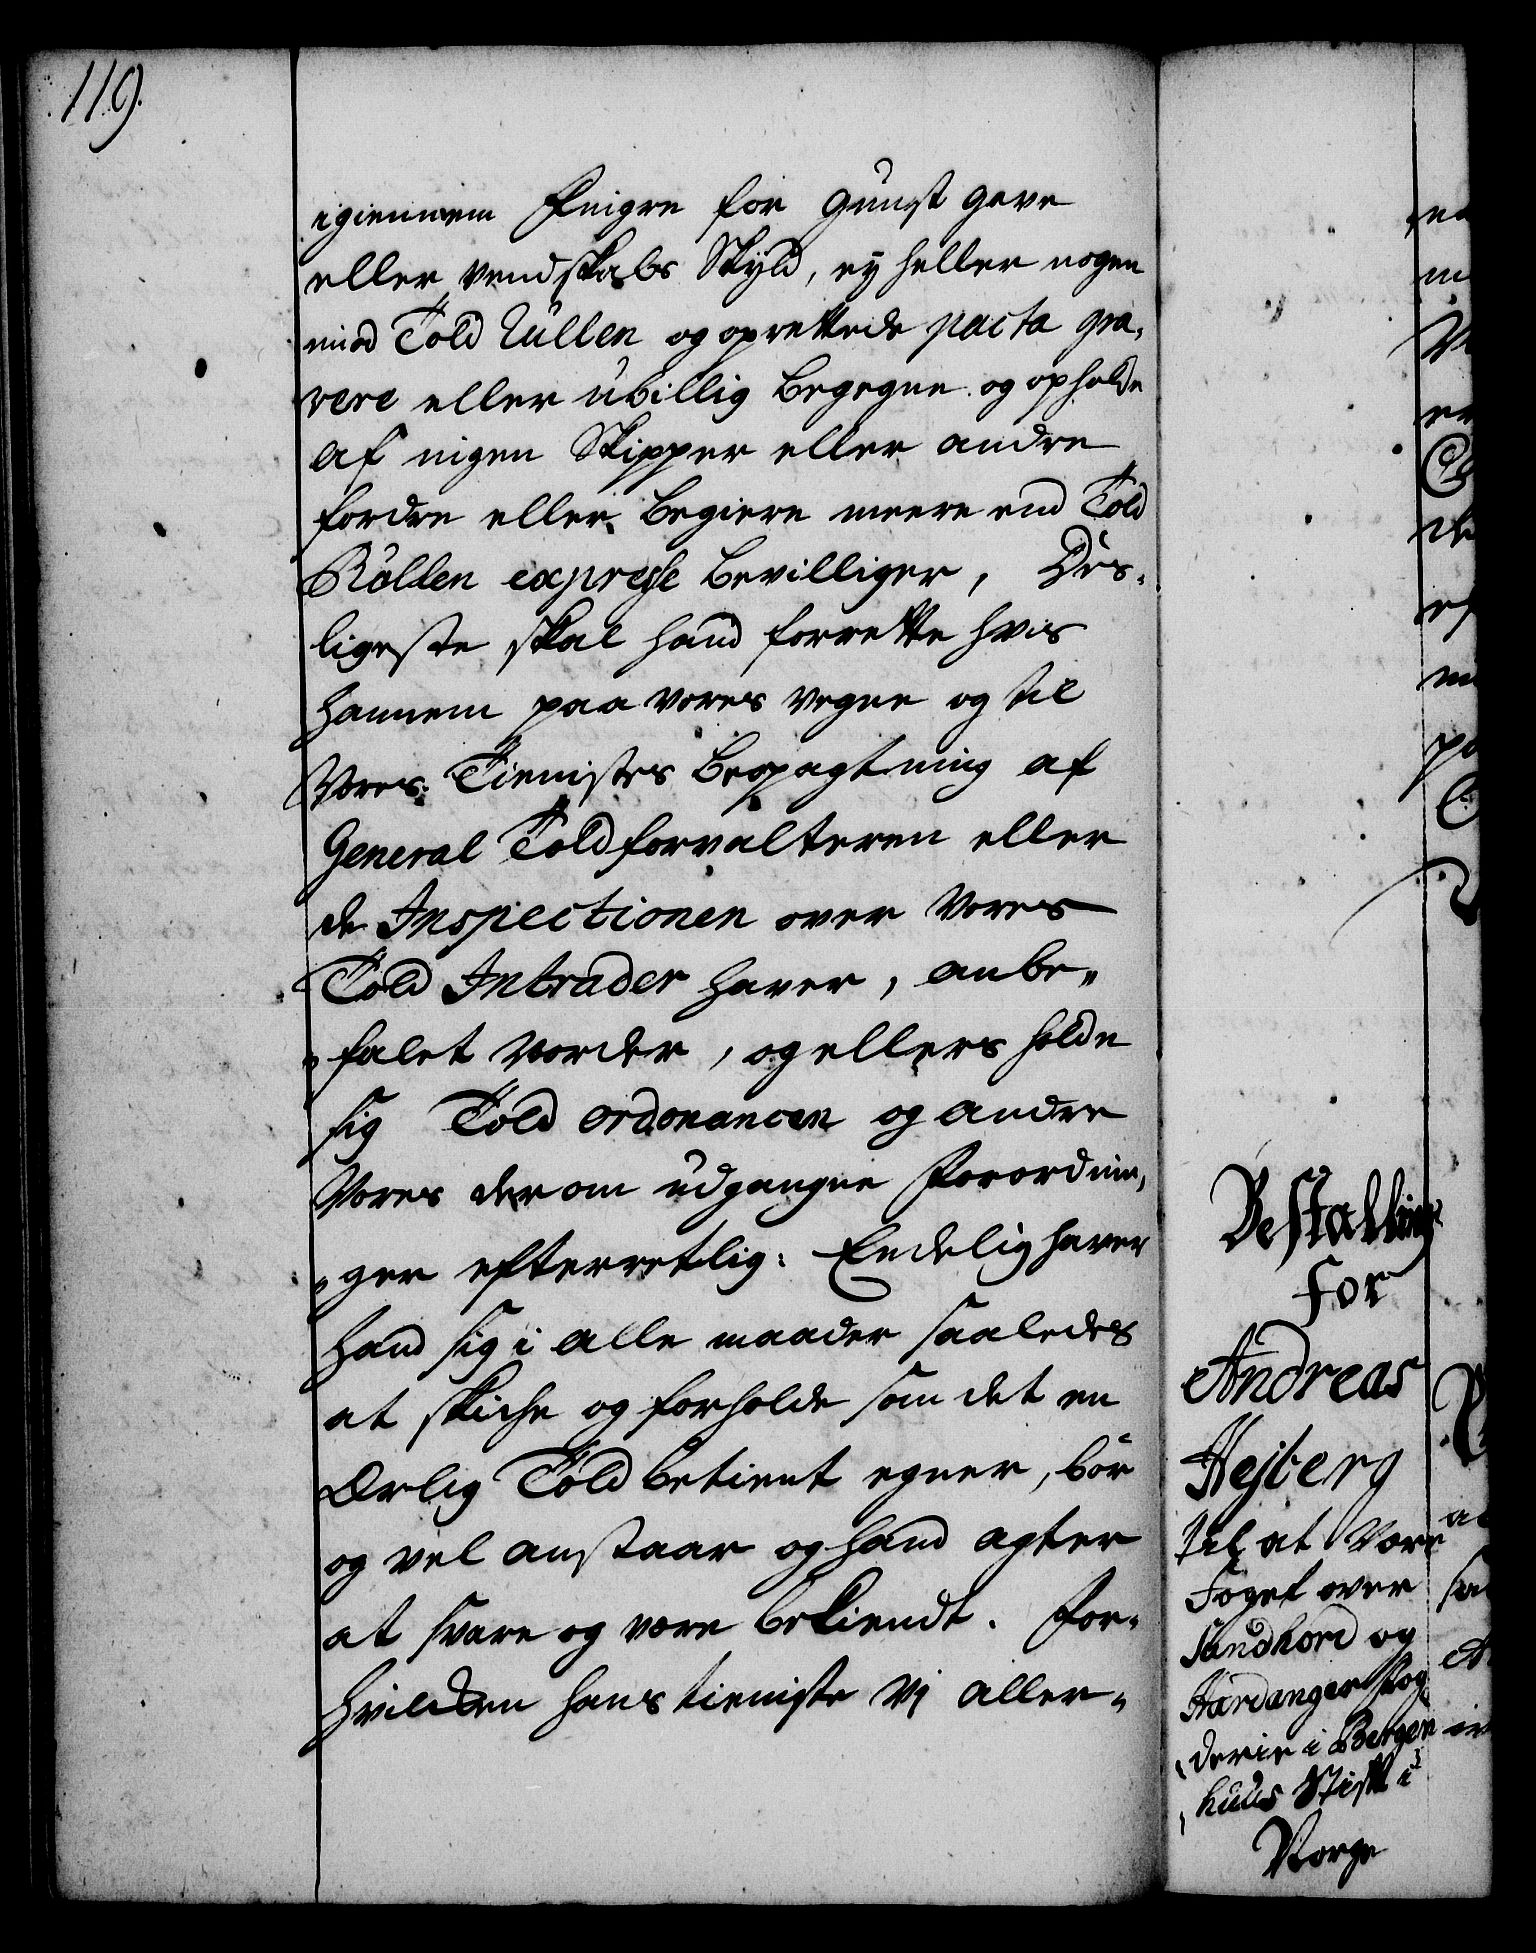 119.
igiennem Fingre for gunst gave
eller vendskabs Skyld, ey heller nogen
mod Told Rullen og oprettede pacta gra„
vere eller ubillig begegne og opholde
af nogen Skipper eller andre
fordre eller begiere meere end Told
Rullen expresse bevilliger, Des„
ligeste skal hand forrette hvis
hannem paa vores vegne og til
Vores Tienistes befragtning af
General Toldforvalteren eller
de Inspectionen over Vores
Told Intrader haver, anbe„
„falet vorder, og ellers holde
sig Told ordonancen og andre
Vores derom udgangne Forordnin„
„ger efterretlig. Endelig haver
hand sig i alle maader saaledes
at skiche og forholde som det en
Ærlig Told betient egner, bør
og vel anstaar og hand agter
at svare og være bekiendt. For„
hvilcken hans tieniste Vj aller„
Bestalling
for
Andreas
Hejberg
til at være
Foget over
Sundhord og
Hardanger Fog
„derie i Bergen
„huus Stift i
Norge